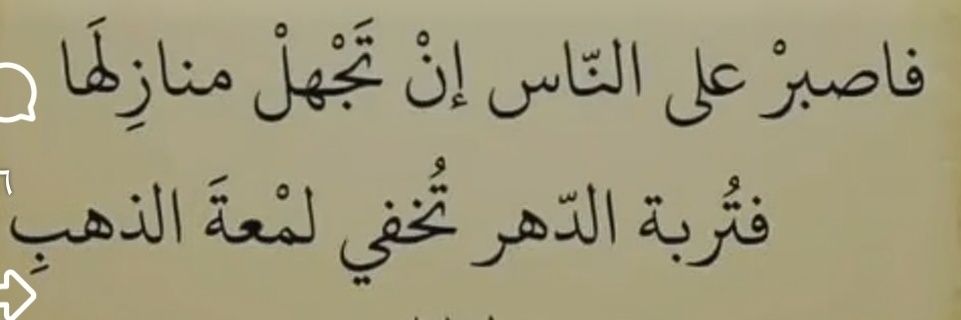 فاصبرْ على النّاس إنْ تَجْهلْ منازِلَها
فتُربة الدّهر تُخفي لمْعةَ الذهبِ
٦